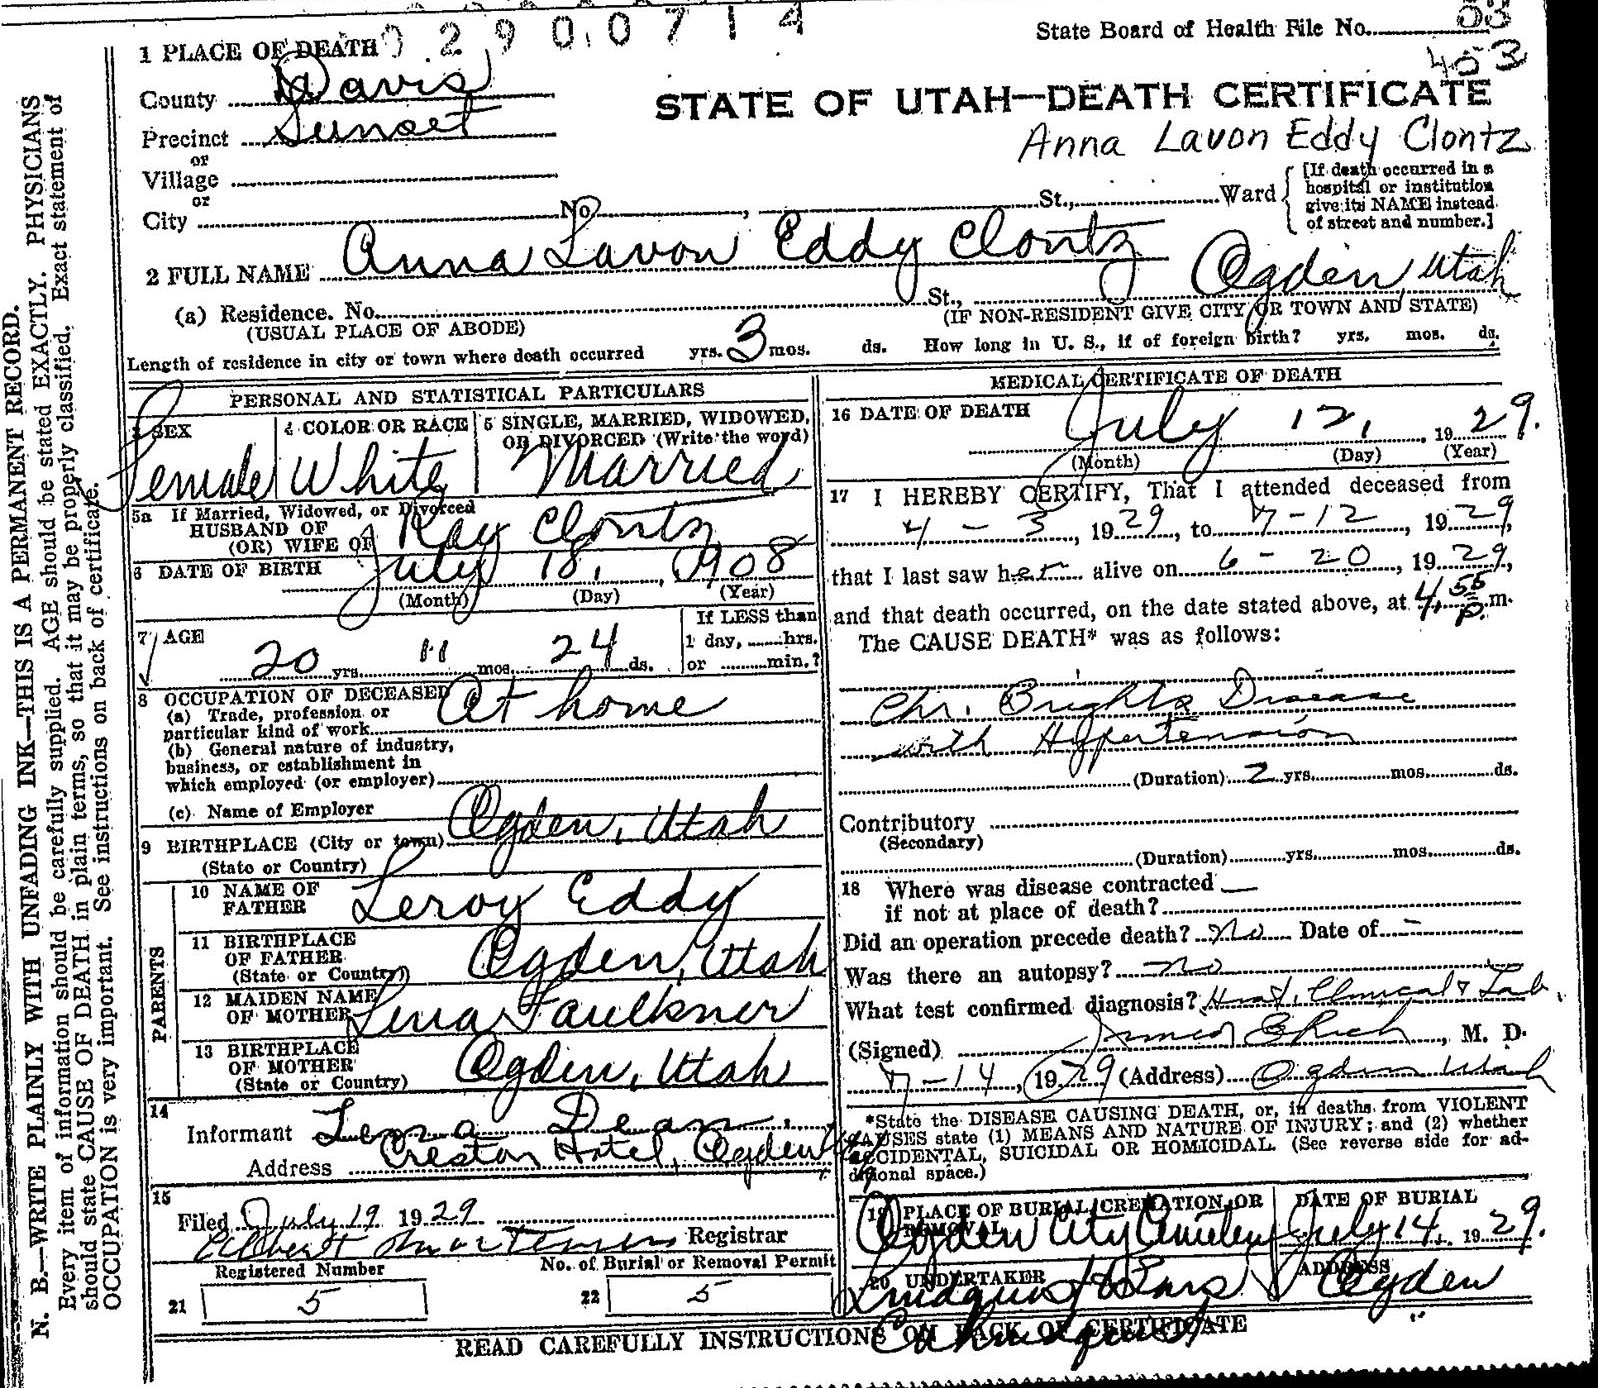 0 2 9 0 0 7 1 4
State Board of Health File No. 53
403
1 PLACE OF DEATH
County Davis
STATE OF UTAH—DEATH CERTIFICATE
Precinct Sunset
Anna Lavon Eddy Clontz
or
Village
or
City No. , St., Ward
[If death occurred in a
hospital or institution
give its NAME instead
of street and number.]
2 FULL NAME Anna Lavon Eddy Clontz
(a) Residence. No. St., Ogden, Utah
(USUAL PLACE OF ABODE) (IF NON-RESIDENT GIVE CITY OR TOWN AND STATE)
Length of residence in city or town where death occurred yrs. 3 mos. ds. How long in U. S., if of foreign birth? yrs. mos. ds.
PERSONAL AND STATISTICAL PARTICULARS
3 SEX
Female
4 COLOR OR RACE
White
5 SINGLE, MARRIED, WIDOWED,
OR DIVORCED (Write the word)
Married
5a If Married, Widowed, or Divorced
HUSBAND OF
(OR) WIFE OF Ray Clontz
6 DATE OF BIRTH July 18, 1908
(Month) (Day) (Year)
7 AGE
20 yrs. 11 mos. 24 ds.
If LESS than
1 day, hrs.
or min.?
8 OCCUPATION OF DECEASED
(a) Trade, profession or
particular kind of work At home
(b) General nature of industry,
business, or establishment in
which employed (or employer)
(c) Name of Employer
9 BIRTHPLACE (City or town) Ogden, Utah
(State or Country)
PARENTS
10 NAME OF
FATHER Leroy Eddy
11 BIRTHPLACE
OF FATHER Ogden, Utah
(State or Country)
12 MAIDEN NAME
OF MOTHER Lena Faulkner
13 BIRTHPLACE
OF MOTHER Ogden, Utah
(State or Country)
14
Informant Lena Dean
Address Creston Hotel, Ogden
15
Filed July 19 1929
Albert Mortensen Registrar
Registered Number
21 5
No. of Burial or Removal Permit
22 5
MEDICAL CERTIFICATE OF DEATH
16 DATE OF DEATH July 12, 1929.
(Month) (Day) (Year)
17 I HEREBY CERTIFY, That I attended deceased from
4 - 3, 1929, to 7-12, 1929,
that I last saw her alive on 6 - 20, 1929,
and that death occurred, on the date stated above, at 4,55 p.m.
The CAUSE DEATH* was as follows:
Chr. Brights Disease
with Hypertension
(Duration) 2 yrs. mos. ds.
Contributory
(Secondary)
(Duration) yrs. mos. ds.
18 Where was disease contracted —
if not at place of death?
Did an operation precede death? No Date of –
Was there an autopsy? no
What test confirmed diagnosis? Clinical & Lab.
(Signed) Rich, M. D.
7-14, 1929 (Address) Ogden Utah
*State the DISEASE CAUSING DEATH, or, in deaths from VIOLENT
CAUSES state (1) MEANS AND NATURE OF INJURY; and (2) whether
ACCIDENTAL, SUICIDAL OR HOMICIDAL. (See reverse side for ad-
ditional space.)
19 PLACE OF BURIAL, CREMATION, OR
REMOVAL
Ogden City Cemetery
DATE OF BURIAL
July 14, 1929.
20 UNDERTAKER
Lindquist & Sons
ADDRESS
Ogden
READ CAREFULLY INSTRUCTIONS ON BACK OF CERTIFICATE
N. B.—WRITE PLAINLY WITH UNFADING INK—THIS IS A PERMANENT RECORD.
Every item of information should be carefully supplied. AGE should be stated EXACTLY. PHYSICIANS
should state CAUSE OF DEATH in plain terms, so that it may be properly classified. Exact statement of
OCCUPATION is very important. See instructions on back of certificate.